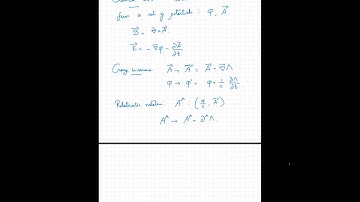 from a set of potentials : φ, A⃗
B⃗ = ∇⃗×A⃗
E⃗ = -∇⃗φ - ∂A⃗/∂t
Gauge invariance A⃗ → A⃗' = A⃗ - ∇⃗Λ
φ → φ' = φ + 1/c ∂Λ/∂t
Relativistic notation : A^μ = (φ/c, A⃗)
A^μ → A^μ + ∂^μ Λ